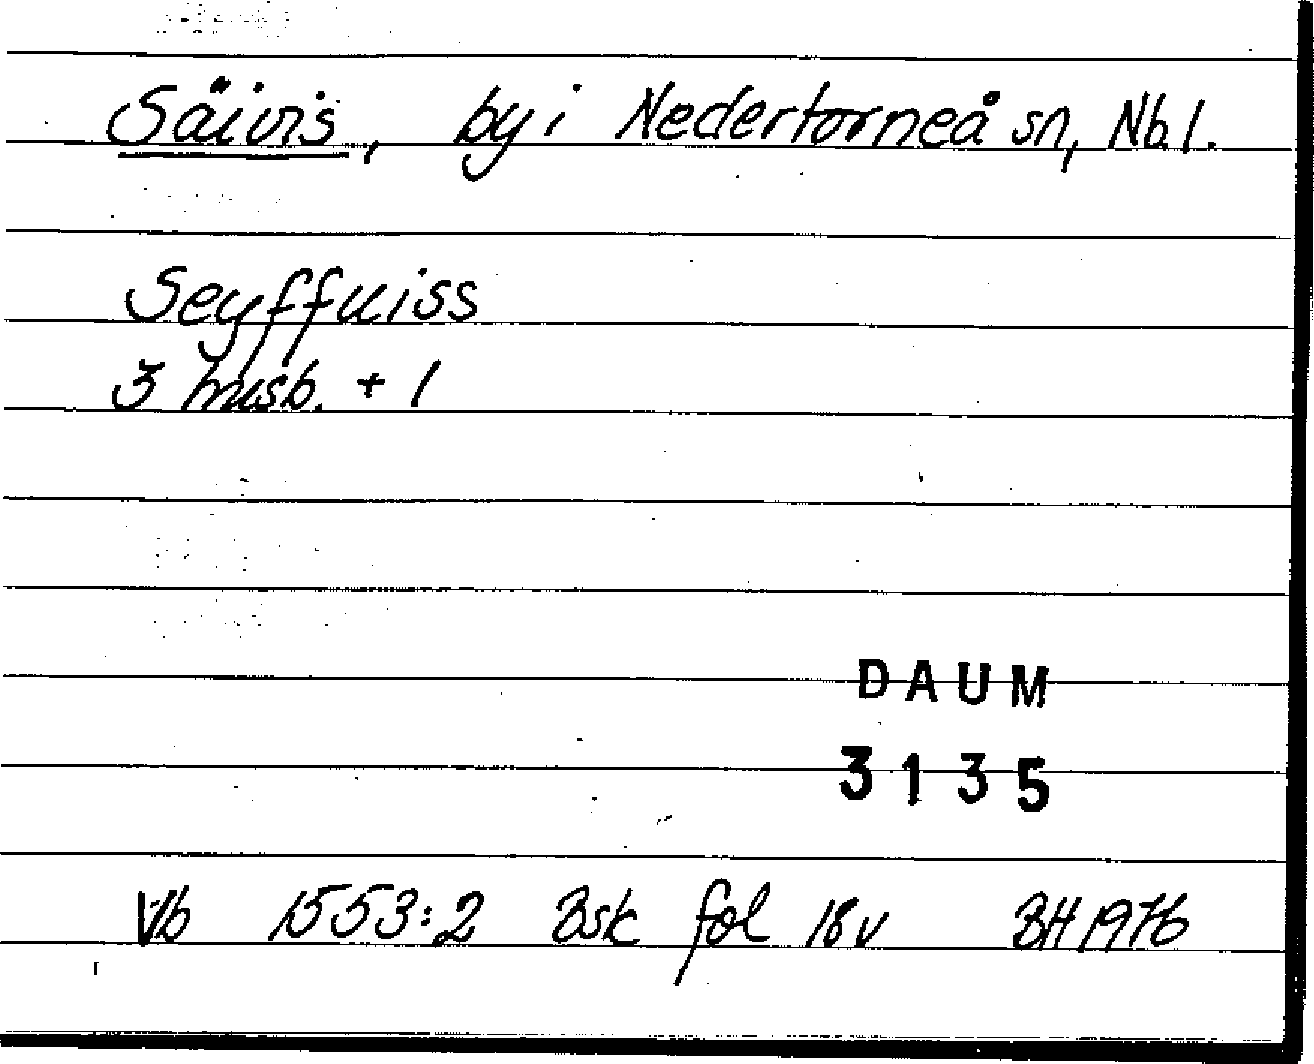 Säivis, by i Nedertorneå sn, Nb.l.
Seyffuiss
3 husb. + 1
DAUM
3135
Vb 1553:2 Bsk fol 18v BH 1976